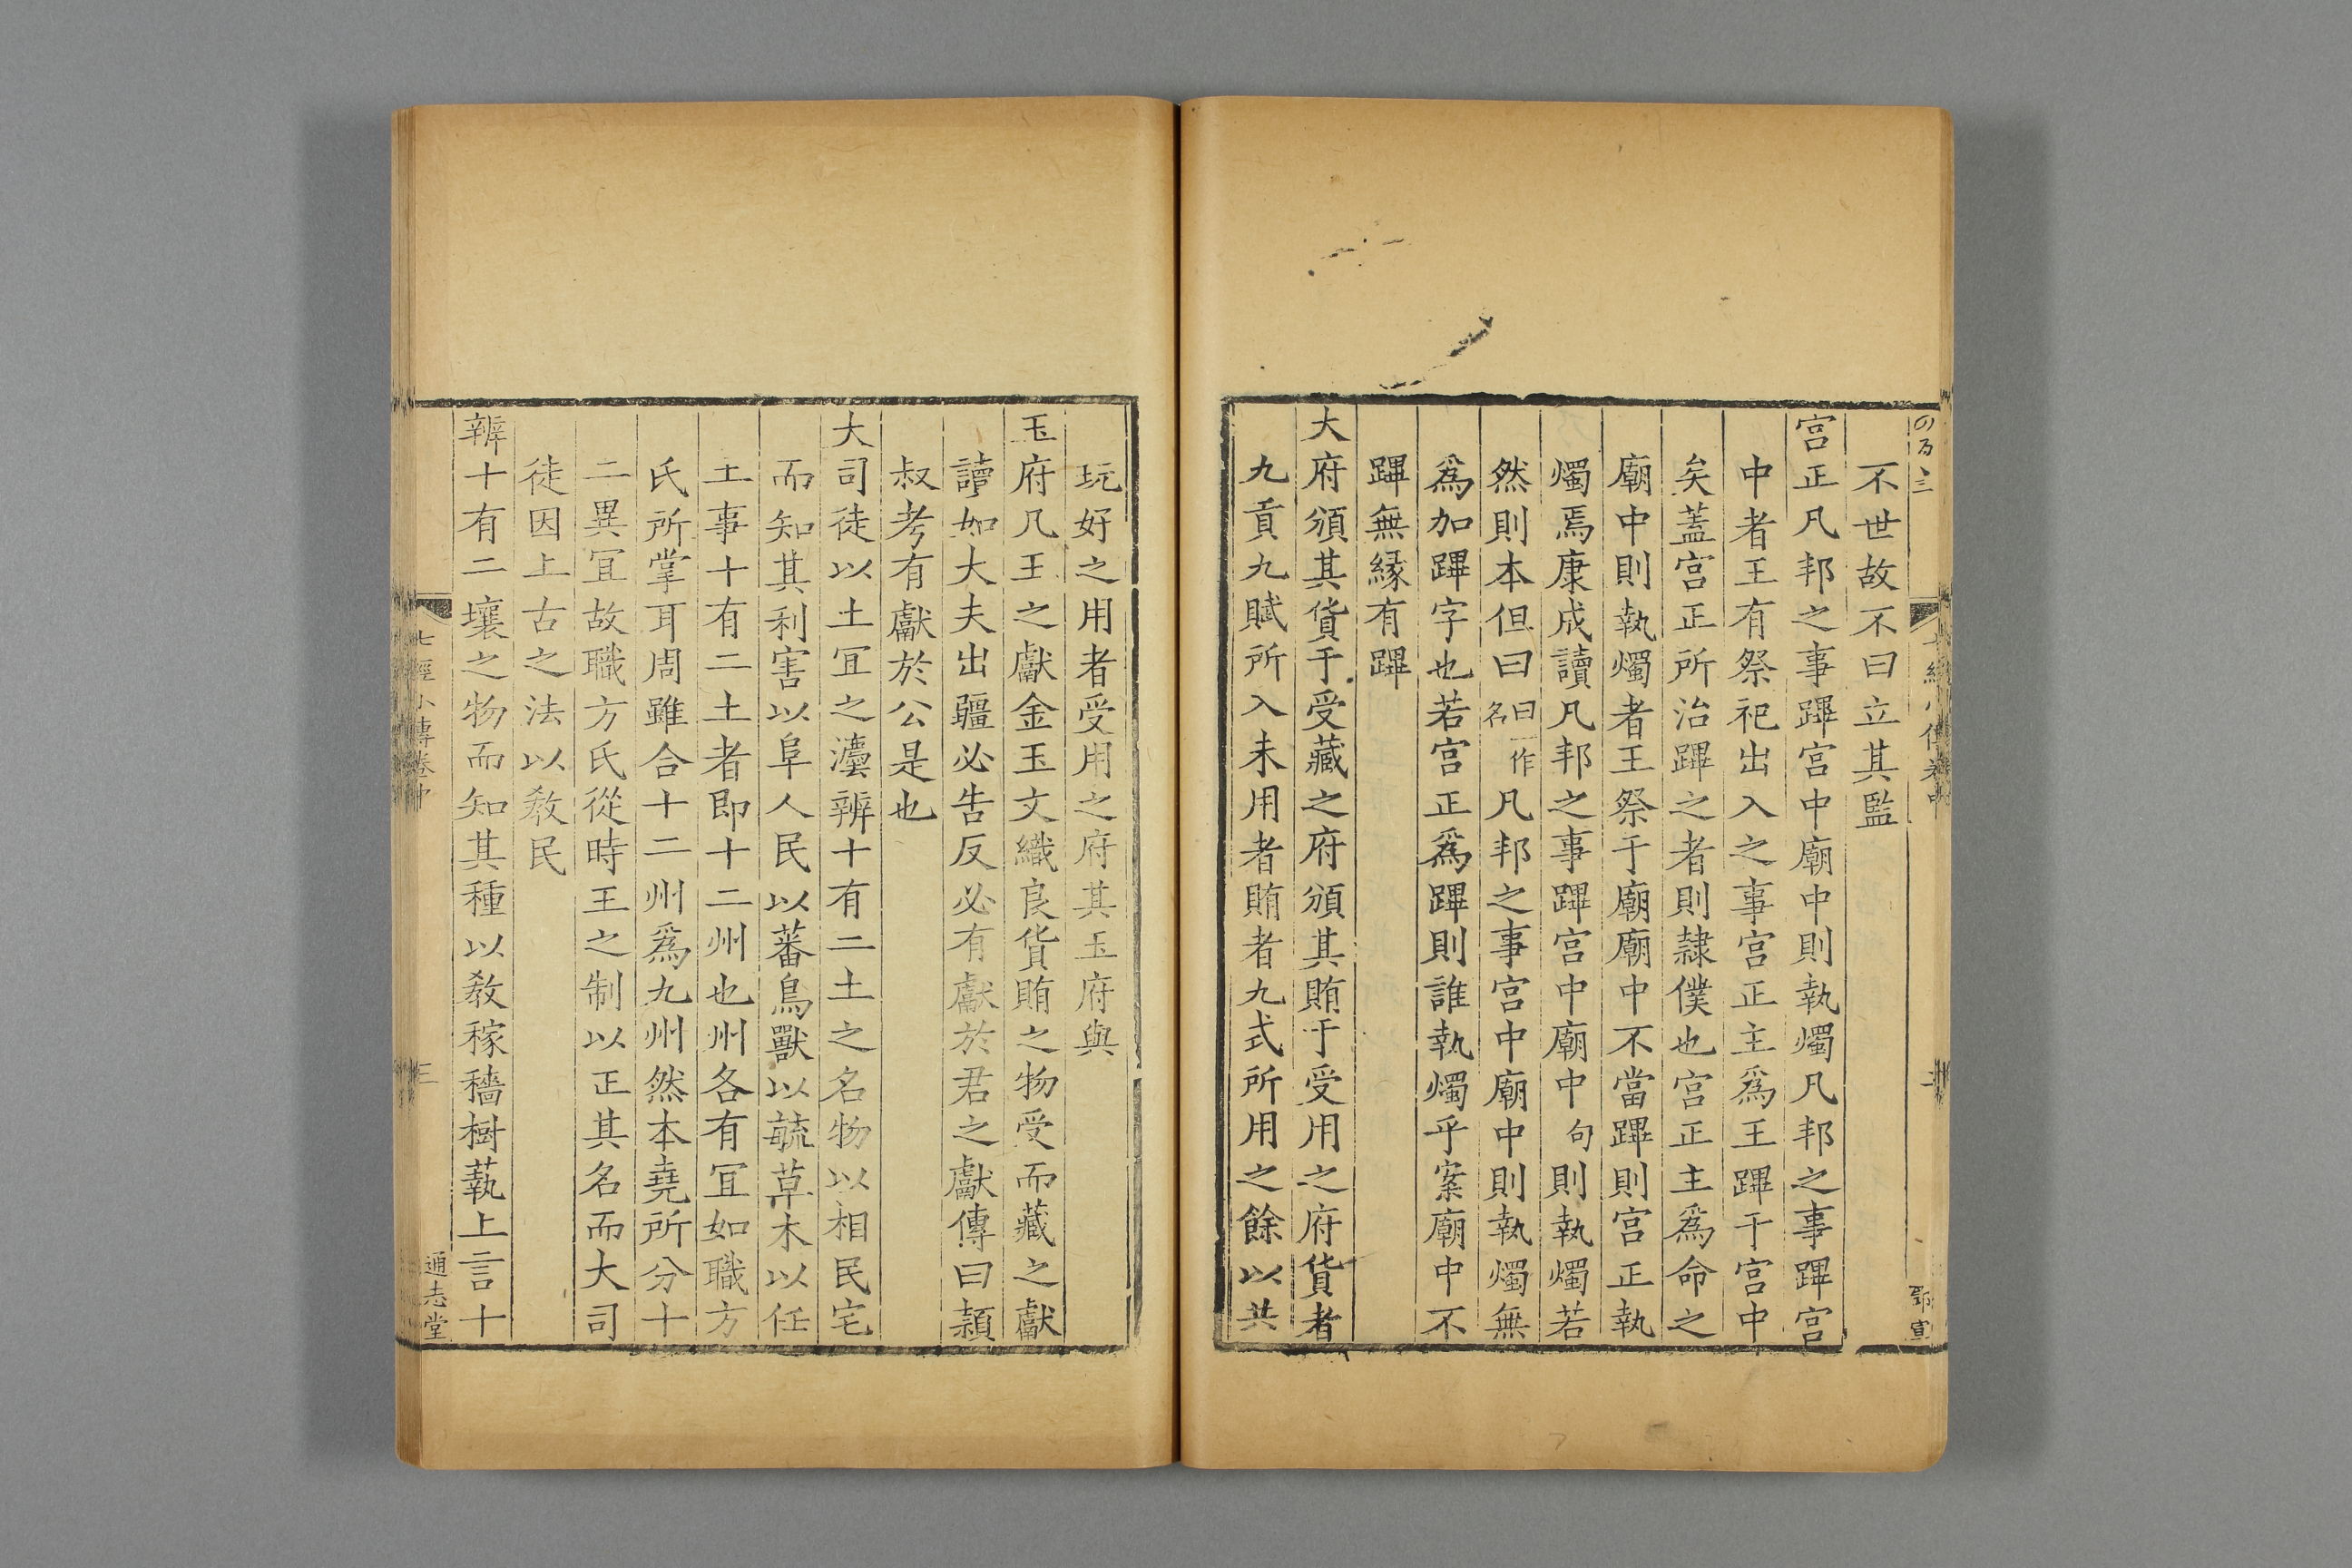 不世故不曰立其監
宫正凡邦之事蹕宫中廟中則執燭凡邦之事蹕宫
中者王有祭祀出入之事宫正主爲王蹕干宫中
矣蓋宫正所治蹕之者則隷僕也宫正主爲命之
廟中則執燭者王祭于廟廟中不當蹕則宫正執
燭焉康成讀凡邦之事蹕宫中廟中句則執燭若
然則本但曰曰一作名凡邦之事宫中廟中則執燭無
爲加蹕字也若宫正爲蹕則誰執燭乎案廟中不
蹕無縁有蹕
大府頒其貨于受藏之府頒其賄于受用之府貨者
九貢九賦所入未用者賄者九式所用之餘以共
玩好之用者受用之府其玉府與
玉府凡王之獻金玉文織良貨賄之物受而藏之獻
讀如大夫出疆必告反必有獻於君之獻傳曰頴
叔考有獻於公是也
大司徒以土冝之灋辨十有二土之名物以相民宅
而知其利害以阜人民以蕃鳥獸以毓草木以任
土事十有二土者即十二州也州各有冝如職方
氏所掌耳周雖合十二州爲九州然本堯所分十
二異冝故職方氏從時王之制以正其名而大司
徒因上古之法以敎民
辨十有二壤之物而知其種以敎稼穡樹蓺上言十
七經小傳卷中
三
通志堂